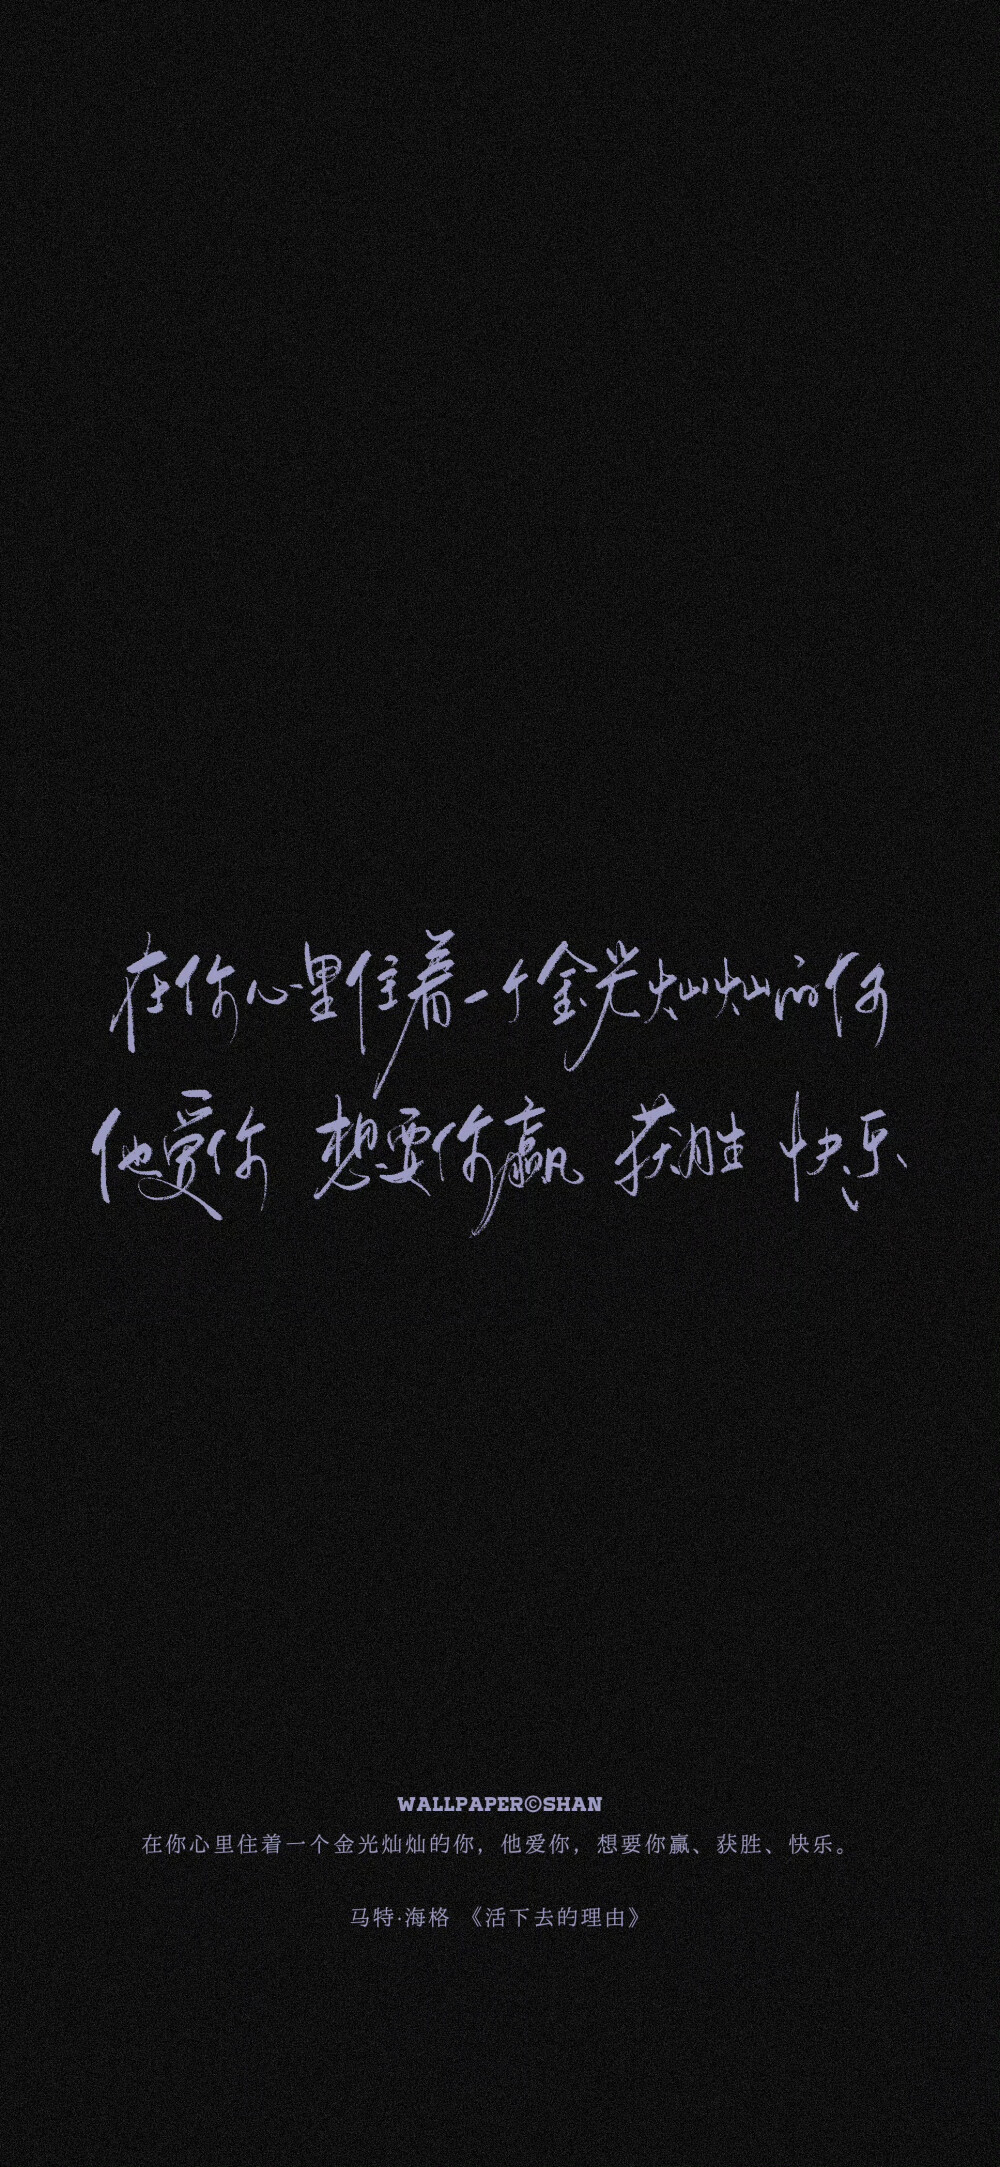 在你心里住着一个金光灿灿的你
他爱你 想要你赢 获胜 快乐
WALLPAPER©SHAN
在你心里住着一个金光灿灿的你，他爱你，想要你赢、获胜、快乐。
马特·海格 《活下去的理由》